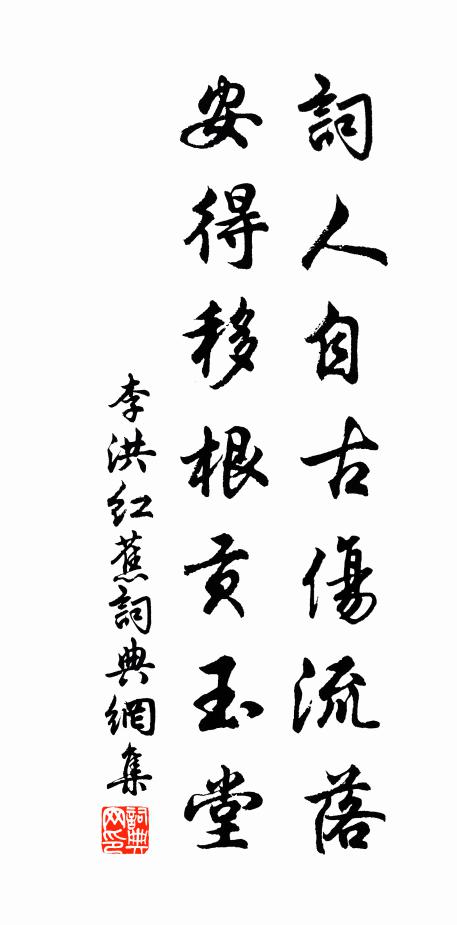 詞人自古傷流落
安得移根貢玉堂
李洪紅蕉詞典網集
詞典網印